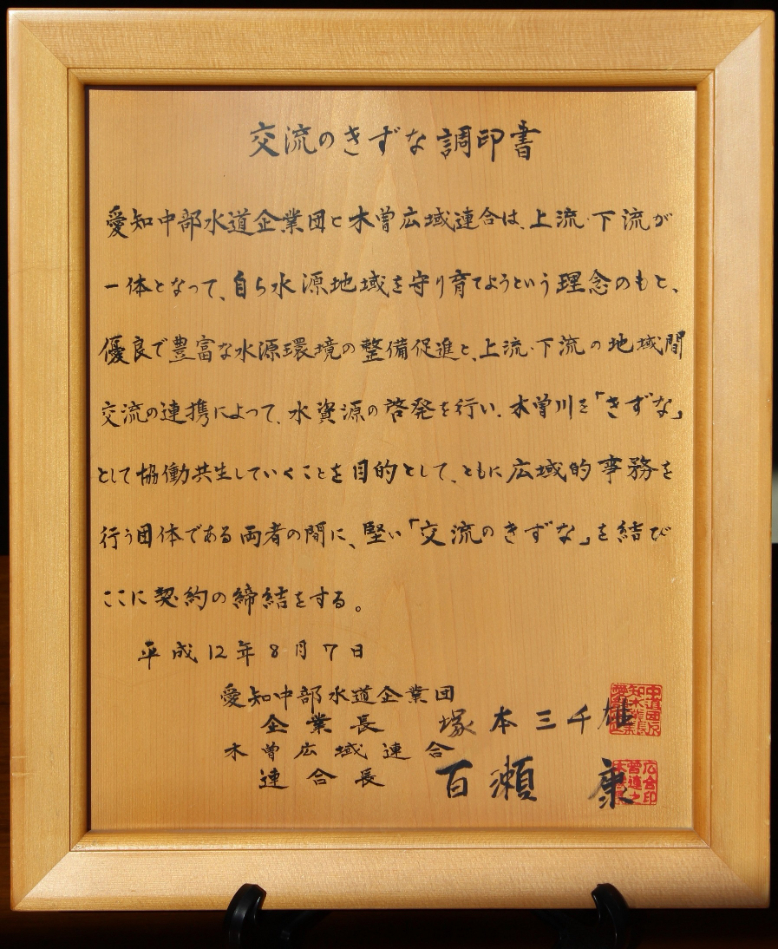 交流のきずな調印書
愛知中部水道企業団と木曽広域連合は、上流・下流が
一体となって、自ら水源地域を守り育てようという理念のもと、
優良で豊富な水源環境の整備促進と、上流・下流の地域間
交流の連携によって、水資源の啓発を行い、木曽川を「きずな」
として協働共生していくことを目的として、ともに広域的事務を
行う団体である両者の間に、堅い「交流のきずな」を結び
ここに契約の締結をする。
平成12年8月7日
愛知中部水道企業団
企業長 塚本三千雄
木曽広域連合
連合長 百瀬 康